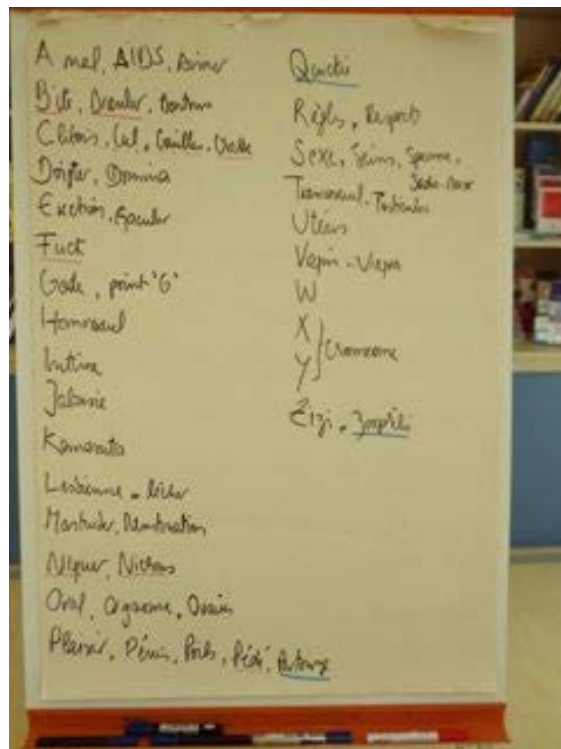 Anal, AIDS, Aimer
Bite, Branler, Bonbons
Clitoris, Cul, Couilles, Chatte
Doigter, Domina
Erection, Ejaculer
Fuck
Gode, point "G"
Homosexuel
Intime
Jalousie
Kamasutra
Lesbienne - lécher
Masturber, Menstruation
Niquer, Nichons
Oral, Orgasme, Ovaires
Plaisir, Pénis, Poils, Pédé,
Quickie
Règles, Respect
Sexe, Seins, Sperme,
Sado-maso
Transsexuel, Testicules
Utérus
Vagin - Vierge
W
X
Y
Zizi,